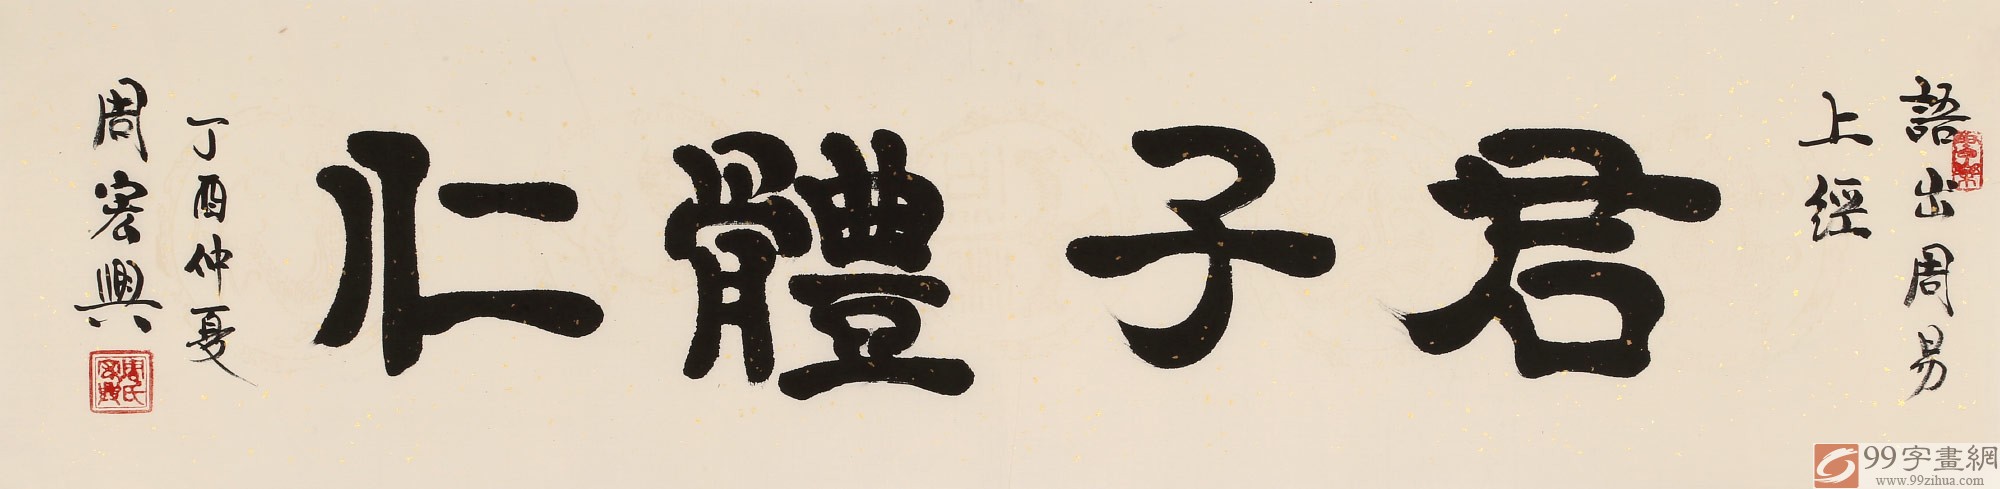 語出周易
上經
君子體仁
丁酉仲夏
周宏興
99字畫網
www.99zihua.com